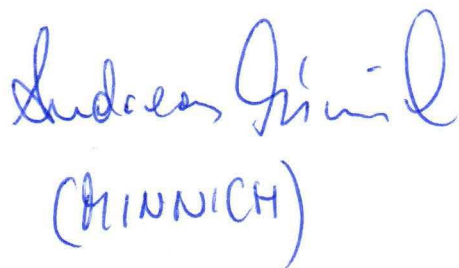 Andreas Minnich
(MINNICH)